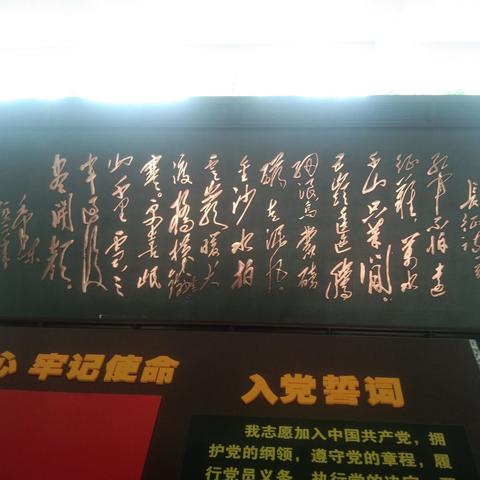 长征诗
红军不怕远
征难萬水
千山只等闲
五嶺逶迤腾
细浪乌蒙磅
礴走泥丸
金沙水拍
雲崖暖大
渡橋横鐵索
寒更喜岷
山千里雪三
軍過後
盡開顏
毛澤東
心 牢记使命
入党誓词
我志愿加入中国共产党，拥
护党的纲领，遵守党的章程，履
行党员义务，执行党的决定，严